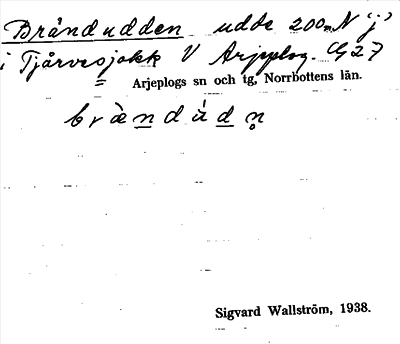 Brändudden udde 200 m N 'j'
i Tjårvesjokk V Arjeplog. G 27
Arjeplogs sn och tg, Norrbottens län.
bràndúdn̥
Sigvard Wallström, 1938.